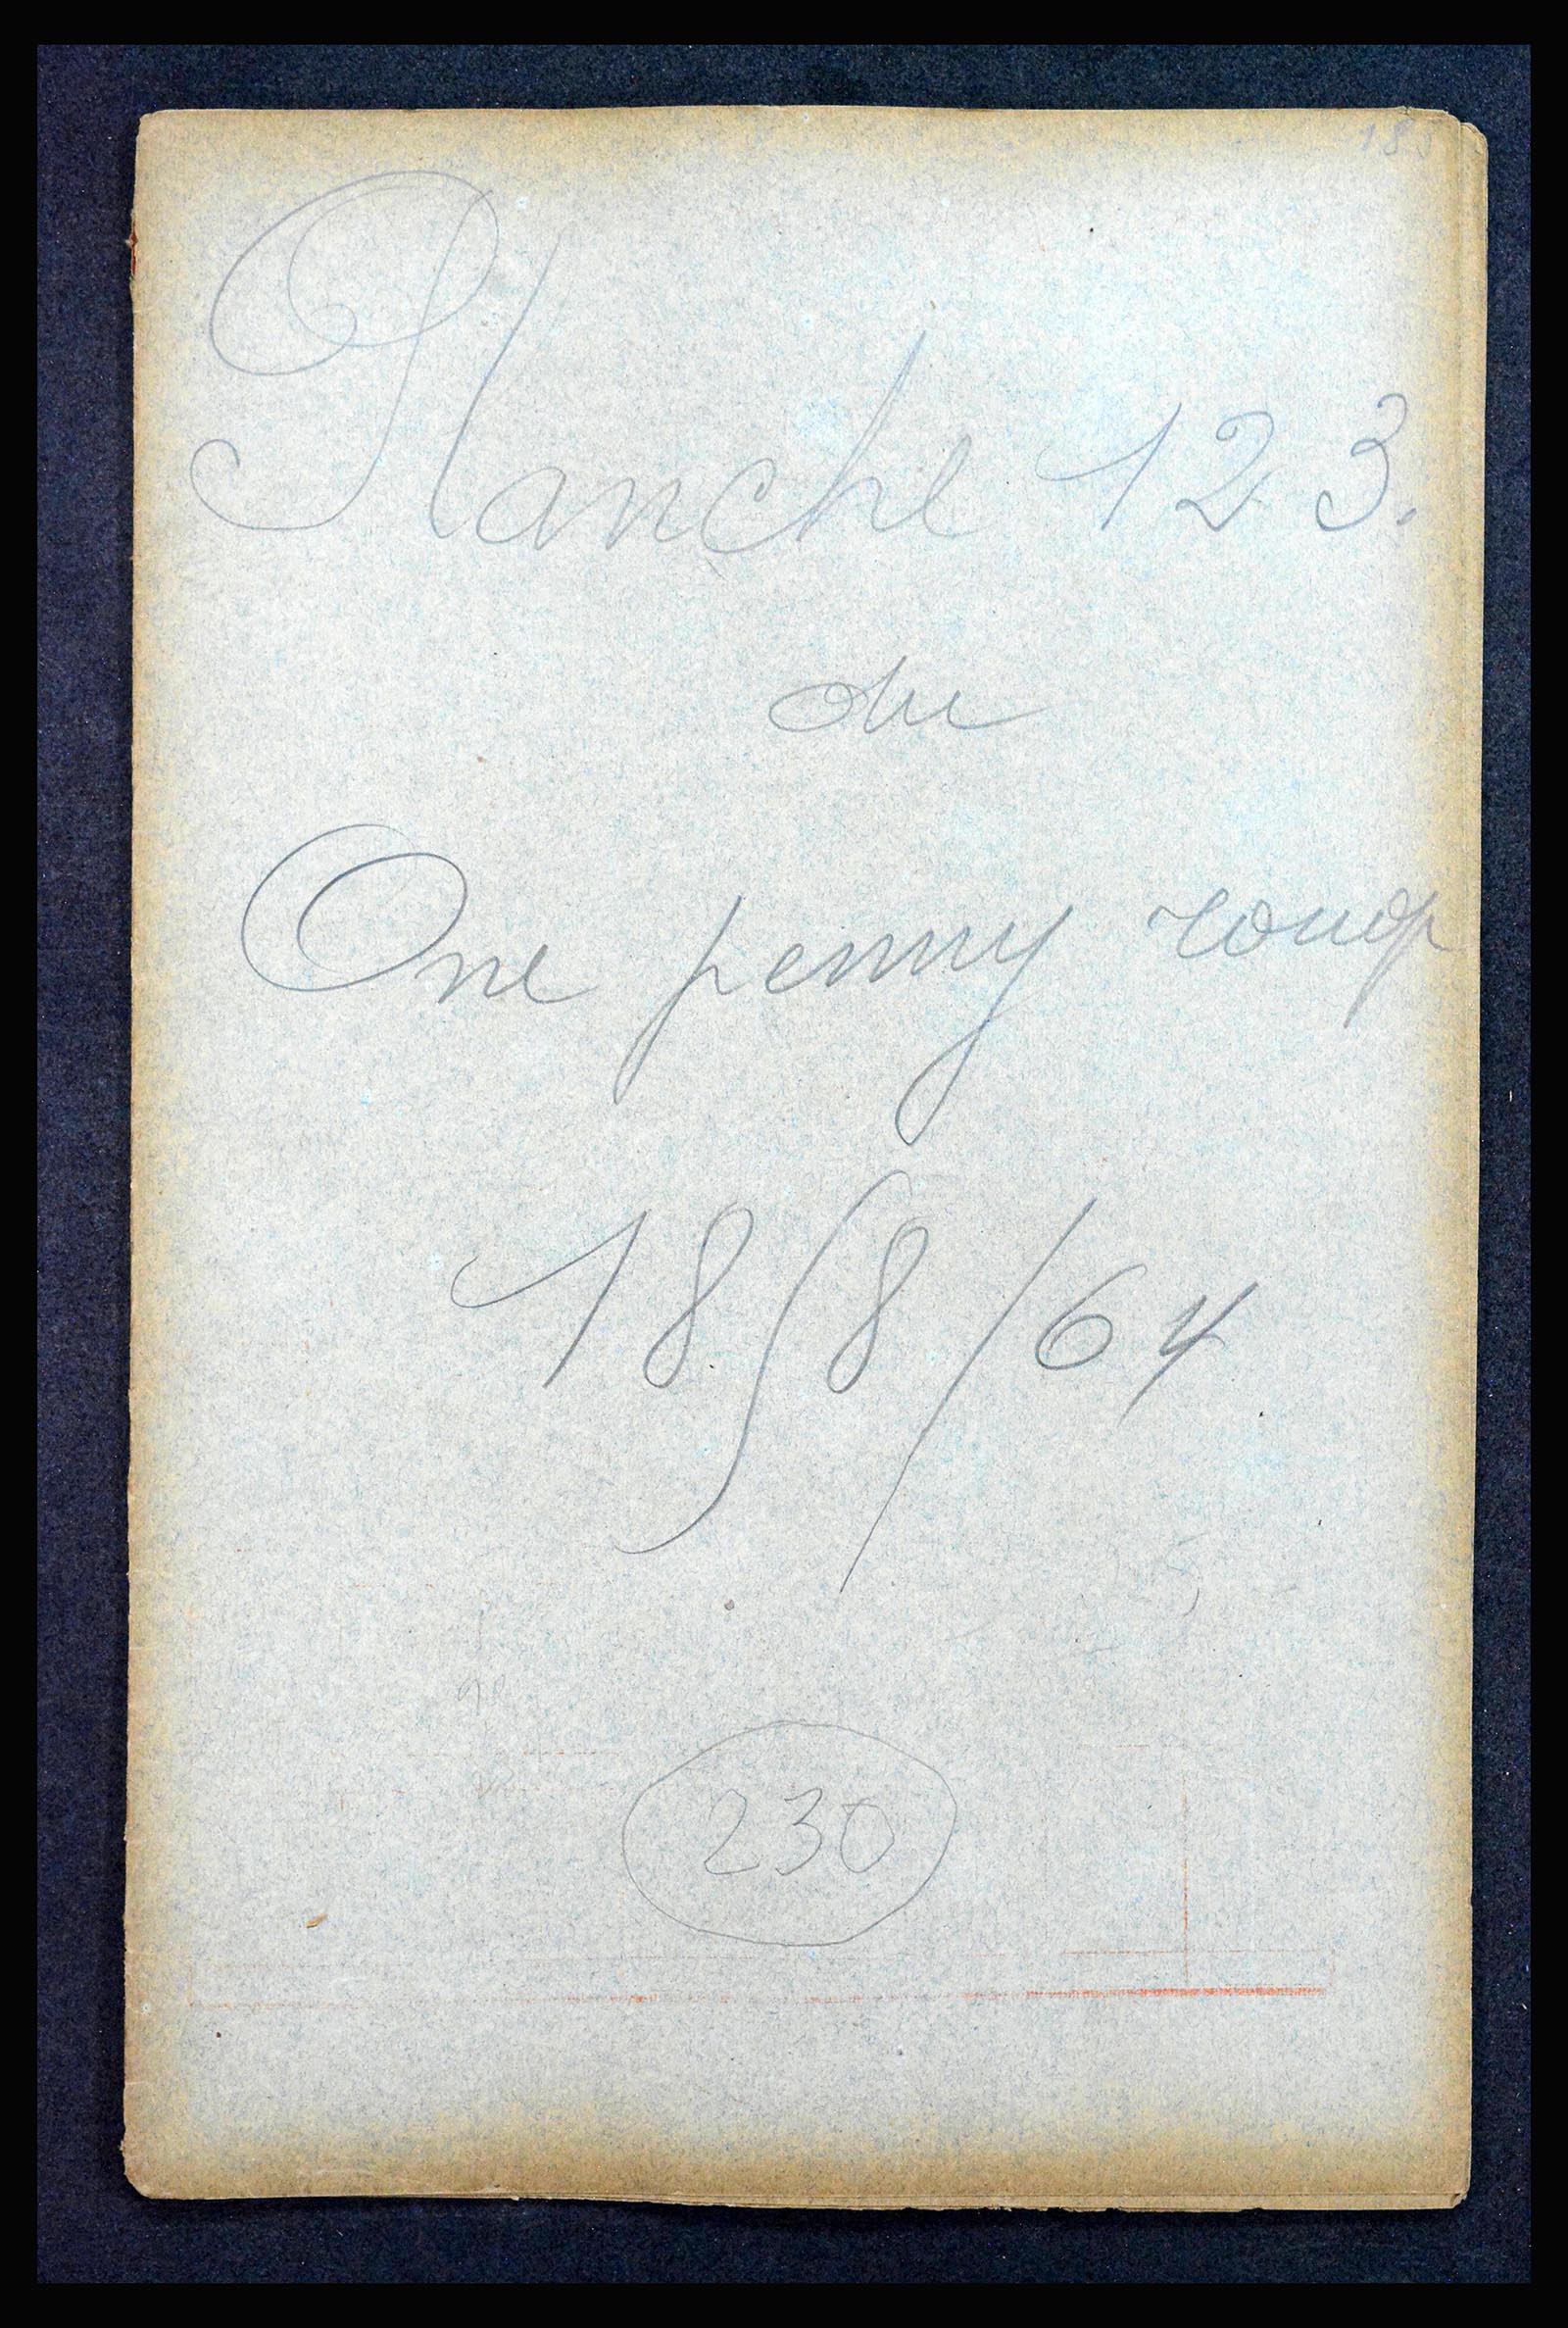 Planche 123.
du
One penny rouge
1858/64
230